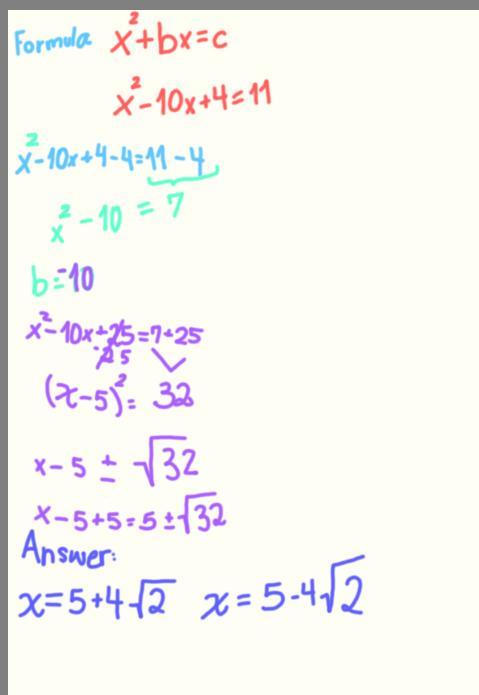 Formula x²+bx=c
x²-10x+4=11
x²-10x+4-4=11-4
x²-10=7
b=-10
x²-10x+25=7+25
(x-5)²=32
x-5 ± √32
x-5+5=5±√32
Answer:
x=5+4√2 x=5-4√2